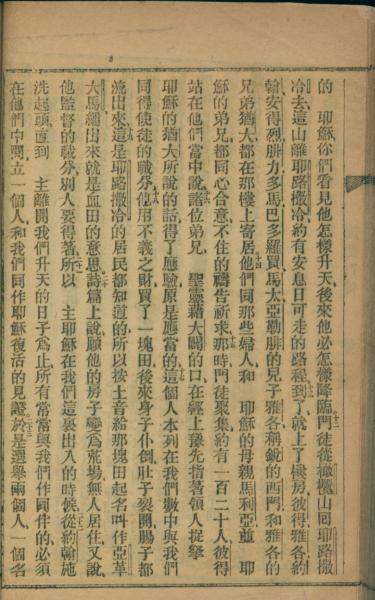 的 耶穌你們看見他怎樣升天後來他必怎樣降臨十二門徒從橄欖山回耶路撒
冷去這山離耶路撒冷約有安息日可走的路程十三到了就上了樓房彼得雅各約
翰安得烈腓力多馬巴多羅買馬太亞勒腓的兒子雅各稱銳的西門和雅各的
兄弟猶大都在那樓上寄居十四他們同那些婦人和 耶穌的母親馬利亞並 耶
穌的弟兄都同心合意不住的禱告祈求十五那時門徒聚集約有一百二十人彼得
站在他們當中說十六諸位弟兄 聖靈藉大闢的口在經上豫先指著領人捉拏
耶穌的猶大所說的話得了應驗原是應當的十七這個人本列在我們數中與我們
同得使徒的職分十八他用不義之財買了一塊田後來身子仆倒肚子裂開腸子都
流出來十九這是耶路撒冷的居民都知道的所以按土音給那塊田起名叫作亞革
大馬繙出來就是血田的意思二十詩篇上說願他的房子變爲荒場無人居住又說
他監督的職分別人要得著二一所以 主耶穌在我們這裏出入的時候二二從約翰施
洗起頭直到 主離開我們升天的日子爲止所有常常與我們作同伴的必須
在他們中間立一個人和我們同作耶穌復活的見證二三於是選舉兩個人一個名